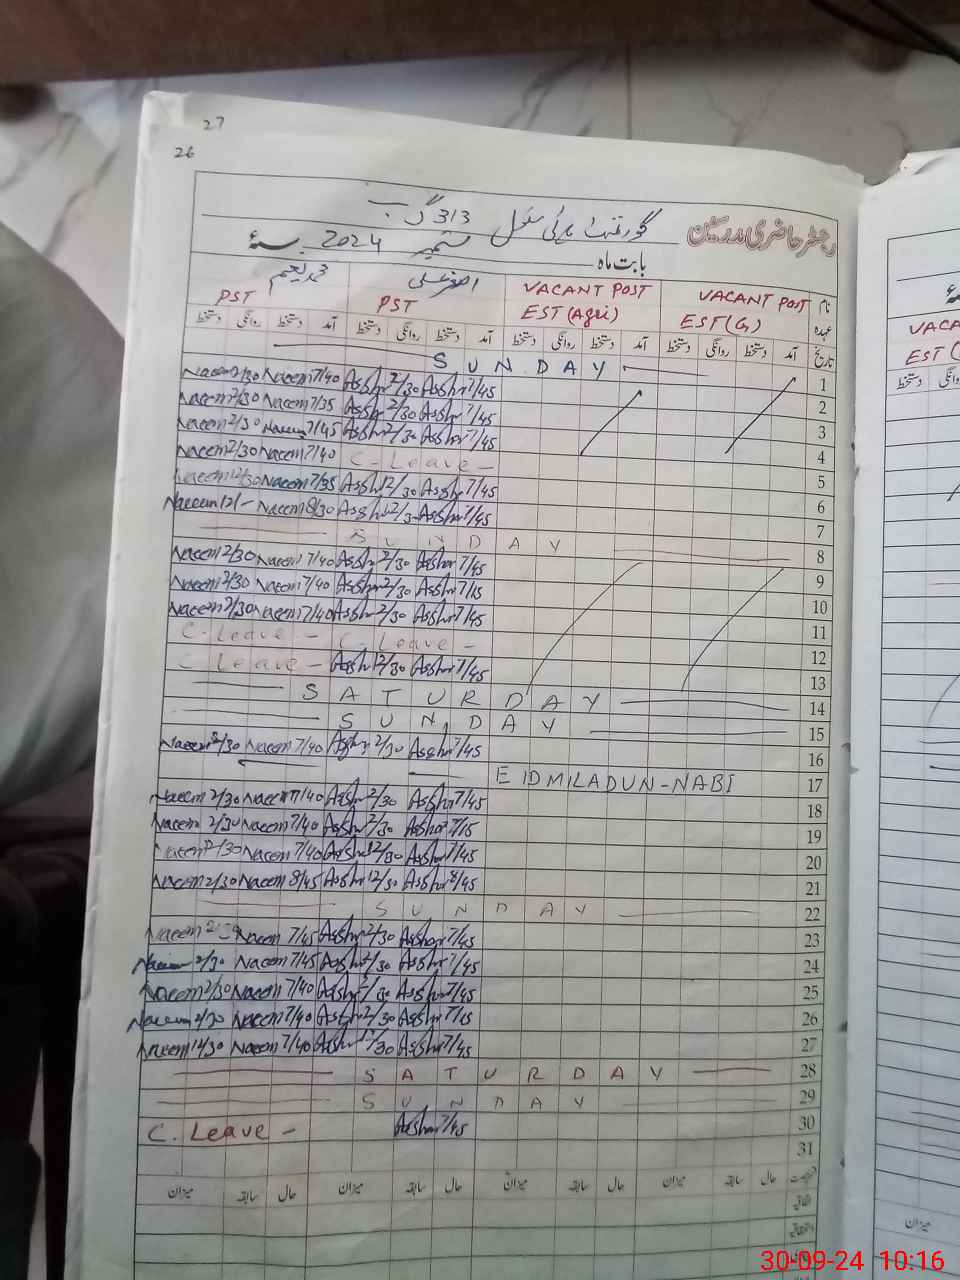 27
26
گورنمنٹ ہائی سکول 313 گ ب
رجسٹر حاضری مدرسین
بابت ماہ ستمبر 2024 سنۂ
نام VACANT POST VACANT POST اصغر علی محمد نعیم
عہدہ EST(G) EST(Agri) PST PST
تاریخ آمد دستخط روانگی دستخط آمد دستخط روانگی دستخط آمد دستخط روانگی دستخط آمد دستخط روانگی دستخط
SUNDAY 1
Naeem 2/30 Naeem 7/40 Asghr 2/30 Asghr 7/45 2
Naeem 2/30 Naeem 7/35 Asghr 2/30 Asghr 7/45 3
Naeem 2/30 Naeem 7/45 Asghr 2/30 Asghr 7/45 4
Naeem 2/30 Naeem 7/40 C-Leave - 5
Naeem 12/30 Naeem 7/35 Asghr 12/30 Asghr 7/45 6
Naeem 12/- Naeem 8/30 Asghr 12/30 Asghr 7/45 7
SUNDAY 8
Naeem 2/30 Naeem 7/40 Asghr 2/30 Asghr 7/45 9
Naeem 2/30 Naeem 7/40 Asghr 2/30 Asghr 7/45 10
Naeem 2/30 Naeem 7/40 Asghr 2/30 Asghr 7/45 11
C. Leave - C. Leave - 12
C Leave - Asghr 12/30 Asghr 7/45 13
SATURDAY 14
SUNDAY 15
Naeem 2/30 Naeem 7/40 Asghr 2/30 Asghr 7/45 16
EIDMILADUN-NABI 17
Naeem 2/30 Naeem 7/40 Asghr 2/30 Asghr 7/45 18
Naeem 2/30 Naeem 7/40 Asghr 2/30 Asghr 7/45 19
Naeem 12/30 Naeem 7/40 Asghr 12/30 Asghr 7/45 20
Naeem 2/30 Naeem 8/45 Asghr 12/30 Asghr 8/45 21
SUNDAY 22
Naeem 2/30 Naeem 7/45 Asghr 2/30 Asghr 7/45 23
Naeem 2/30 Naeem 7/45 Asghr 2/30 Asghr 7/45 24
Naeem 2/30 Naeem 7/40 Asghr 2/30 Asghr 7/45 25
Naeem 2/30 Naeem 7/40 Asghr 2/30 Asghr 7/45 26
Naeem 12/30 Naeem 7/40 Asghr 12/30 Asghr 7/45 27
SATURDAY 28
SUNDAY 29
C. Leave - Asghr 7/45 30
31
رخصت حال سابقہ میزان حال سابقہ میزان حال سابقہ میزان حال سابقہ میزان
اتفاقیہ
میزان
30-09-24 10:16